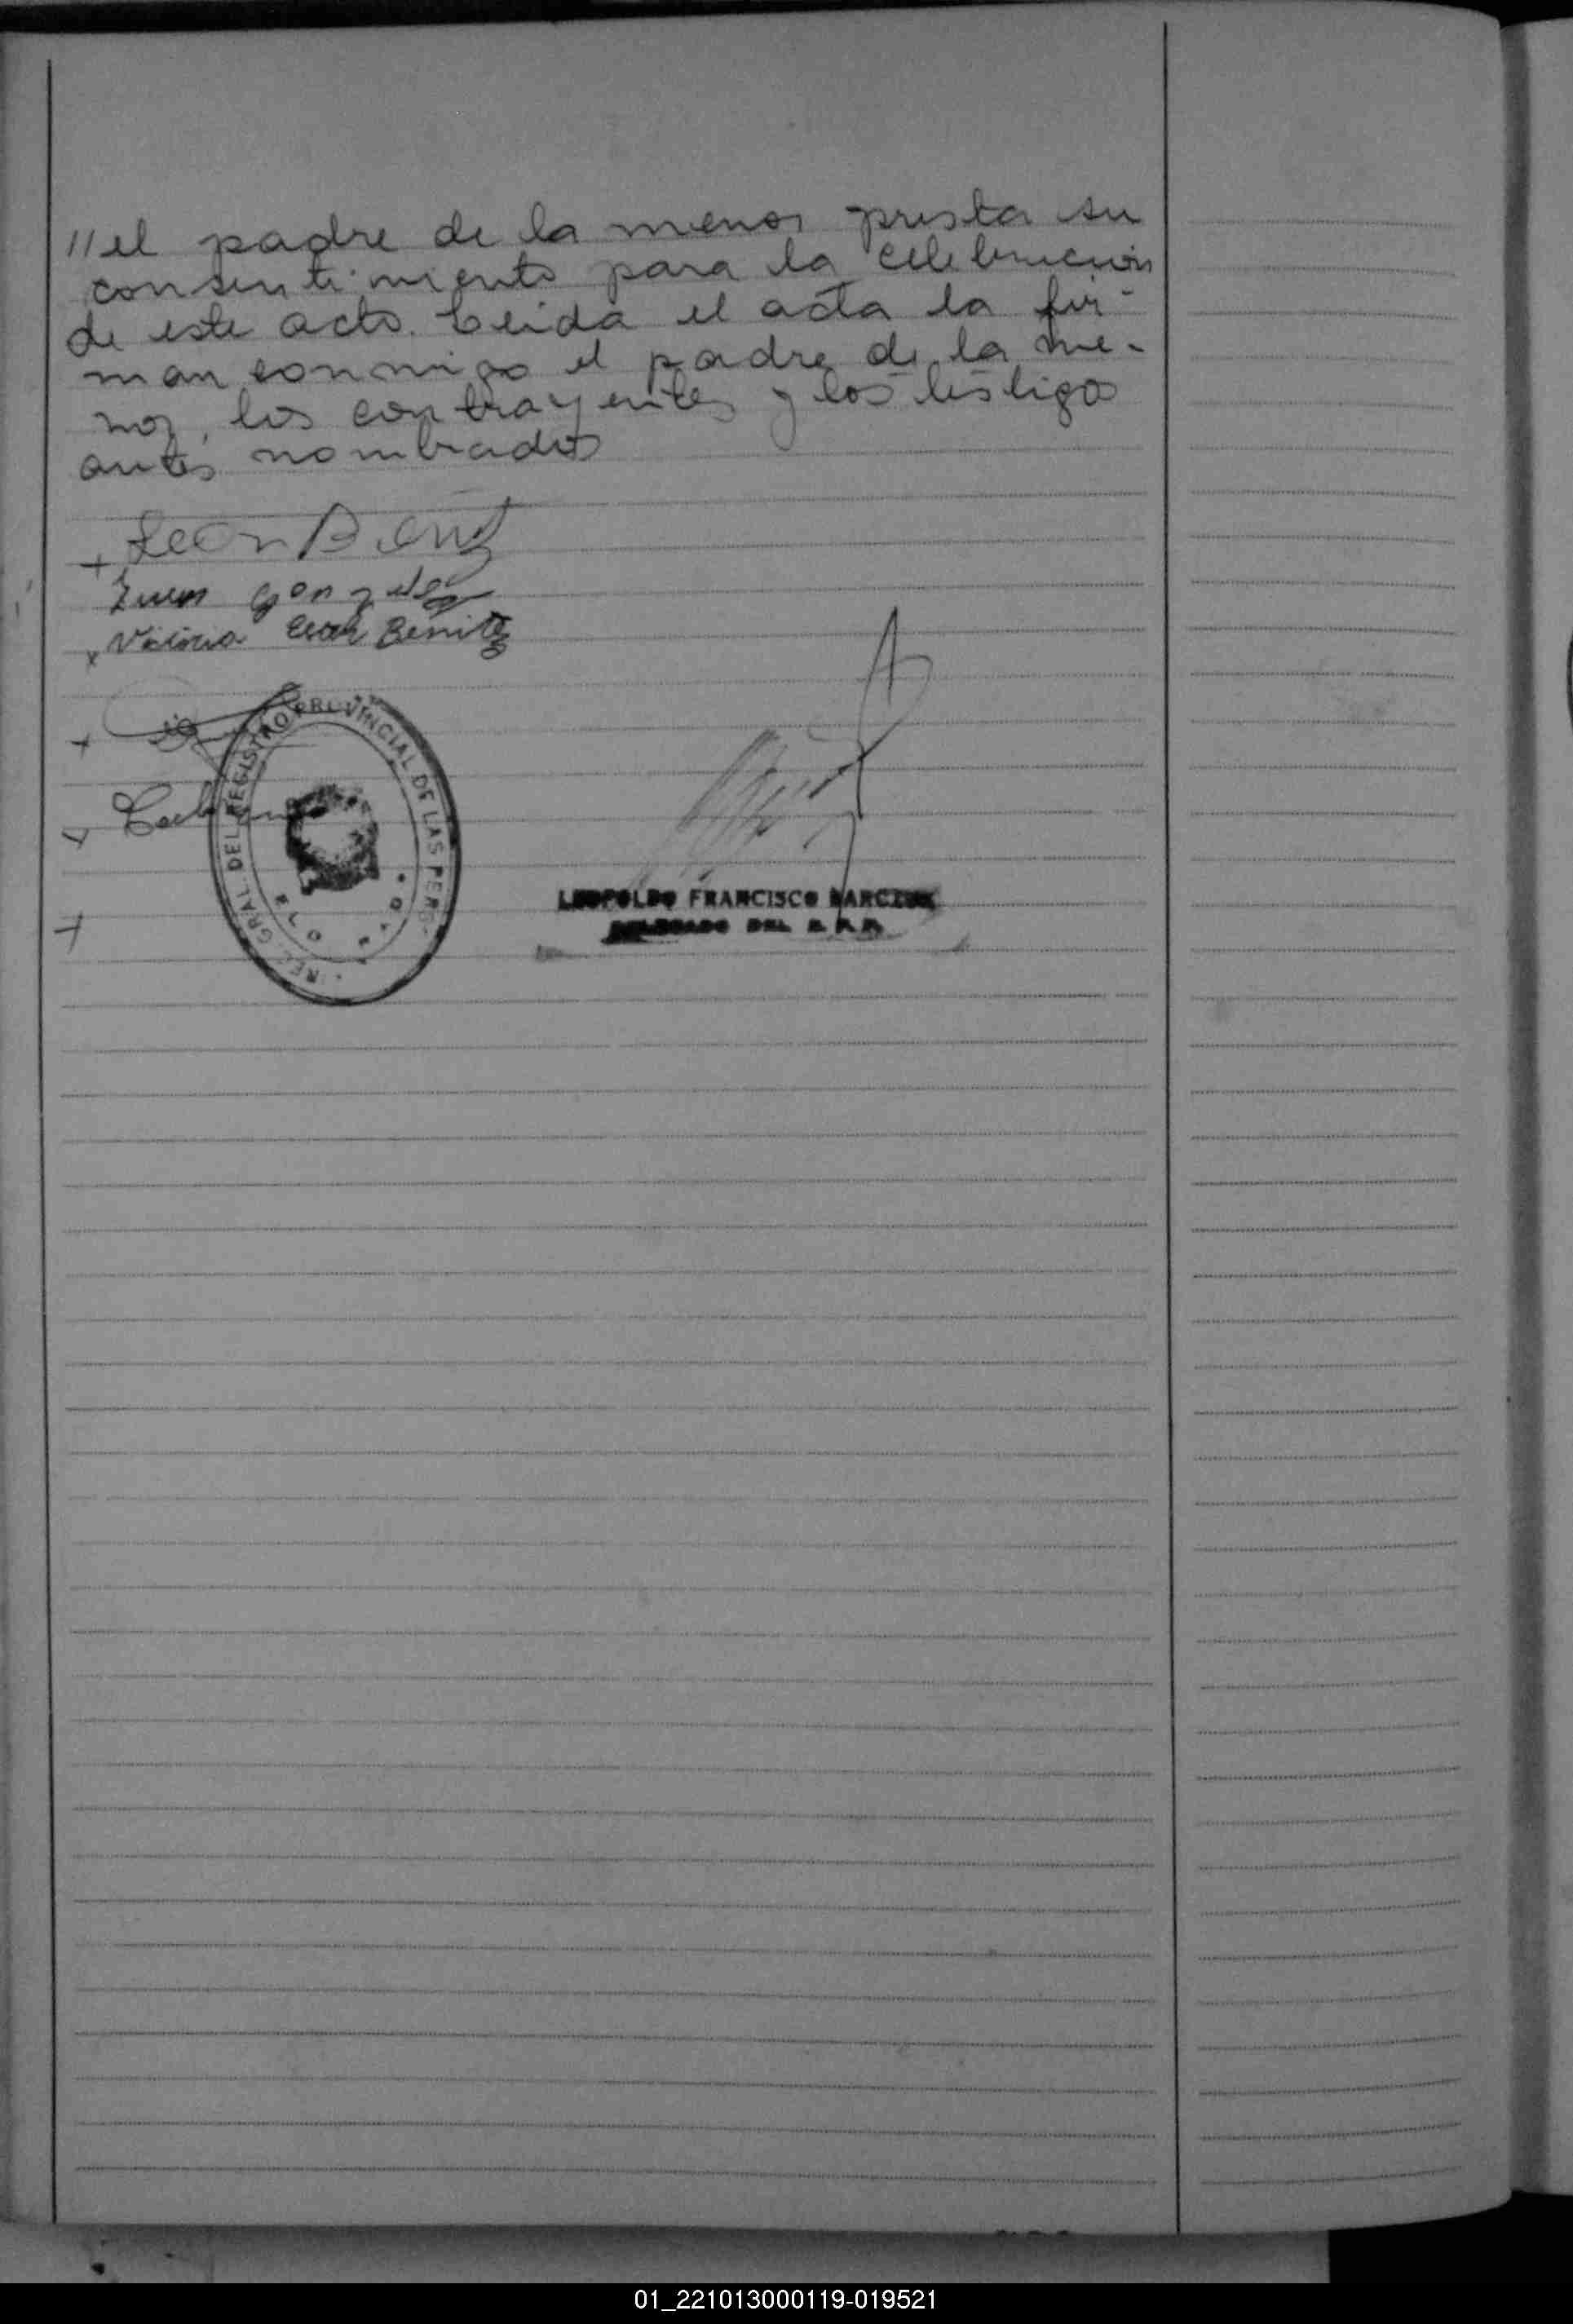 // el padre de la menor presta su
consentimiento para la celebración
de este acto. Leida el acta la fir-
man conmigo el padre de la me-
nor, los contrayentes y los testigos
antes nombrados
+ Leon Benitz
Juan Gonzalez
x Benitez
+
+
+
DEL REGISTRO PROVINCIAL DE LAS PERS
LEOPOLDO FRANCISCO
DELEGADO DEL R. P. P.
01_221013000119-019521